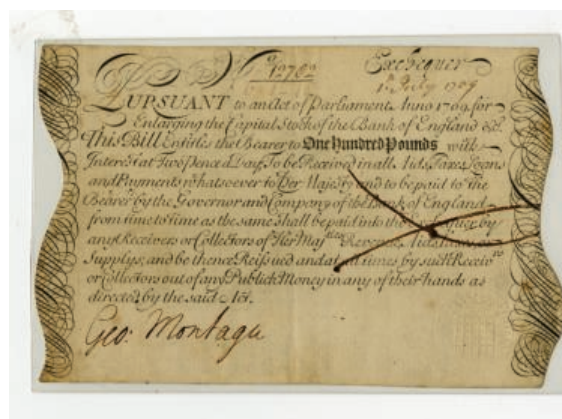 No 12702 Exchequer
1st July 1709
PURSUANT to an Act of Parliament Anno 1709. for
Enlarging the Capital Stock of the Bank of England &c.
This Bill Entitles the Bearer to One Hundred Pounds with
Interest at Two Pence a Day, To be Received in all Aids, Taxes, Loans
and Payments whatsoever to Her Majesty and to be paid to the
Bearer by the Governor and Company of the Bank of England
from time to time as the same shall be paid into the Exchequer by
any Receivers or Collectors of Her Majties Revenue, Aids, Taxes, or
Supplys; and be thence Reissued and at all times by such Receivrs
or Collectors out of any Publick Money in any of their hands as
directed by the said Act.
Geo: Montagu